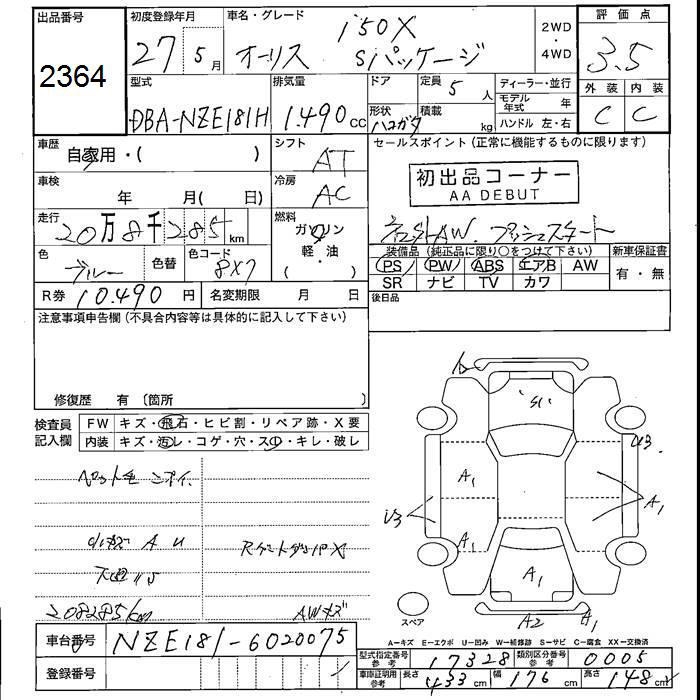 出品番号
2364
初度登録年月
27 5月
車名・グレード
オーリス 150X
Sパッケージ
2WD
・
4WD
評価点
3.5
外装 内装
C C
型式
DBA-NZE181H
排気量
1.490cc
ドア
形状
ハコガタ
定員 5人
積載 kg
ディーラー・並行
モデル年式 年
ハンドル 左・右
車歴
自家用・( )
シフト
AT
セールスポイント(正常に機能するものに限ります)
初出品コーナー
AA DEBUT
車検
年 月( 日)
冷房
AC
走行
20万8千285km
燃料
ガソリン
軽・油
( )
社外AW. プッシュスタート
色
ブルー
色替
色コード
8X7
装備品(純正品に限り○をつけて下さい)
PS PW ABS エアB AW
SR ナビ TV カワ
新車保証書
有・無
R券 10.490円
名変期限 月 日
後日品
注意事項申告欄(不具合内容等は具体的に記入して下さい)
修復歴 有〔箇所
検査員
記入欄
FW キズ・飛石・ヒビ割・リペア跡・X要
内装 キズ・汚レ・コゲ・穴・スレ・キレ・破レ
ペット毛 ニオイ.
小キズ A U
208285km
AWキズ
A
S1
U3
A1
A1
U3
A1
A1
A2
A1
スペア
A−キズ E−エクボ U−凹み W−補修跡 S−サビ C−腐食 XX−交換済
車台番号 NZE181-6020075
登録番号
型式指定番号
参考
17328
類別区分番号
参考
0005
車庫証明用
参考
長さ 433cm 幅 176cm 高さ 148cm